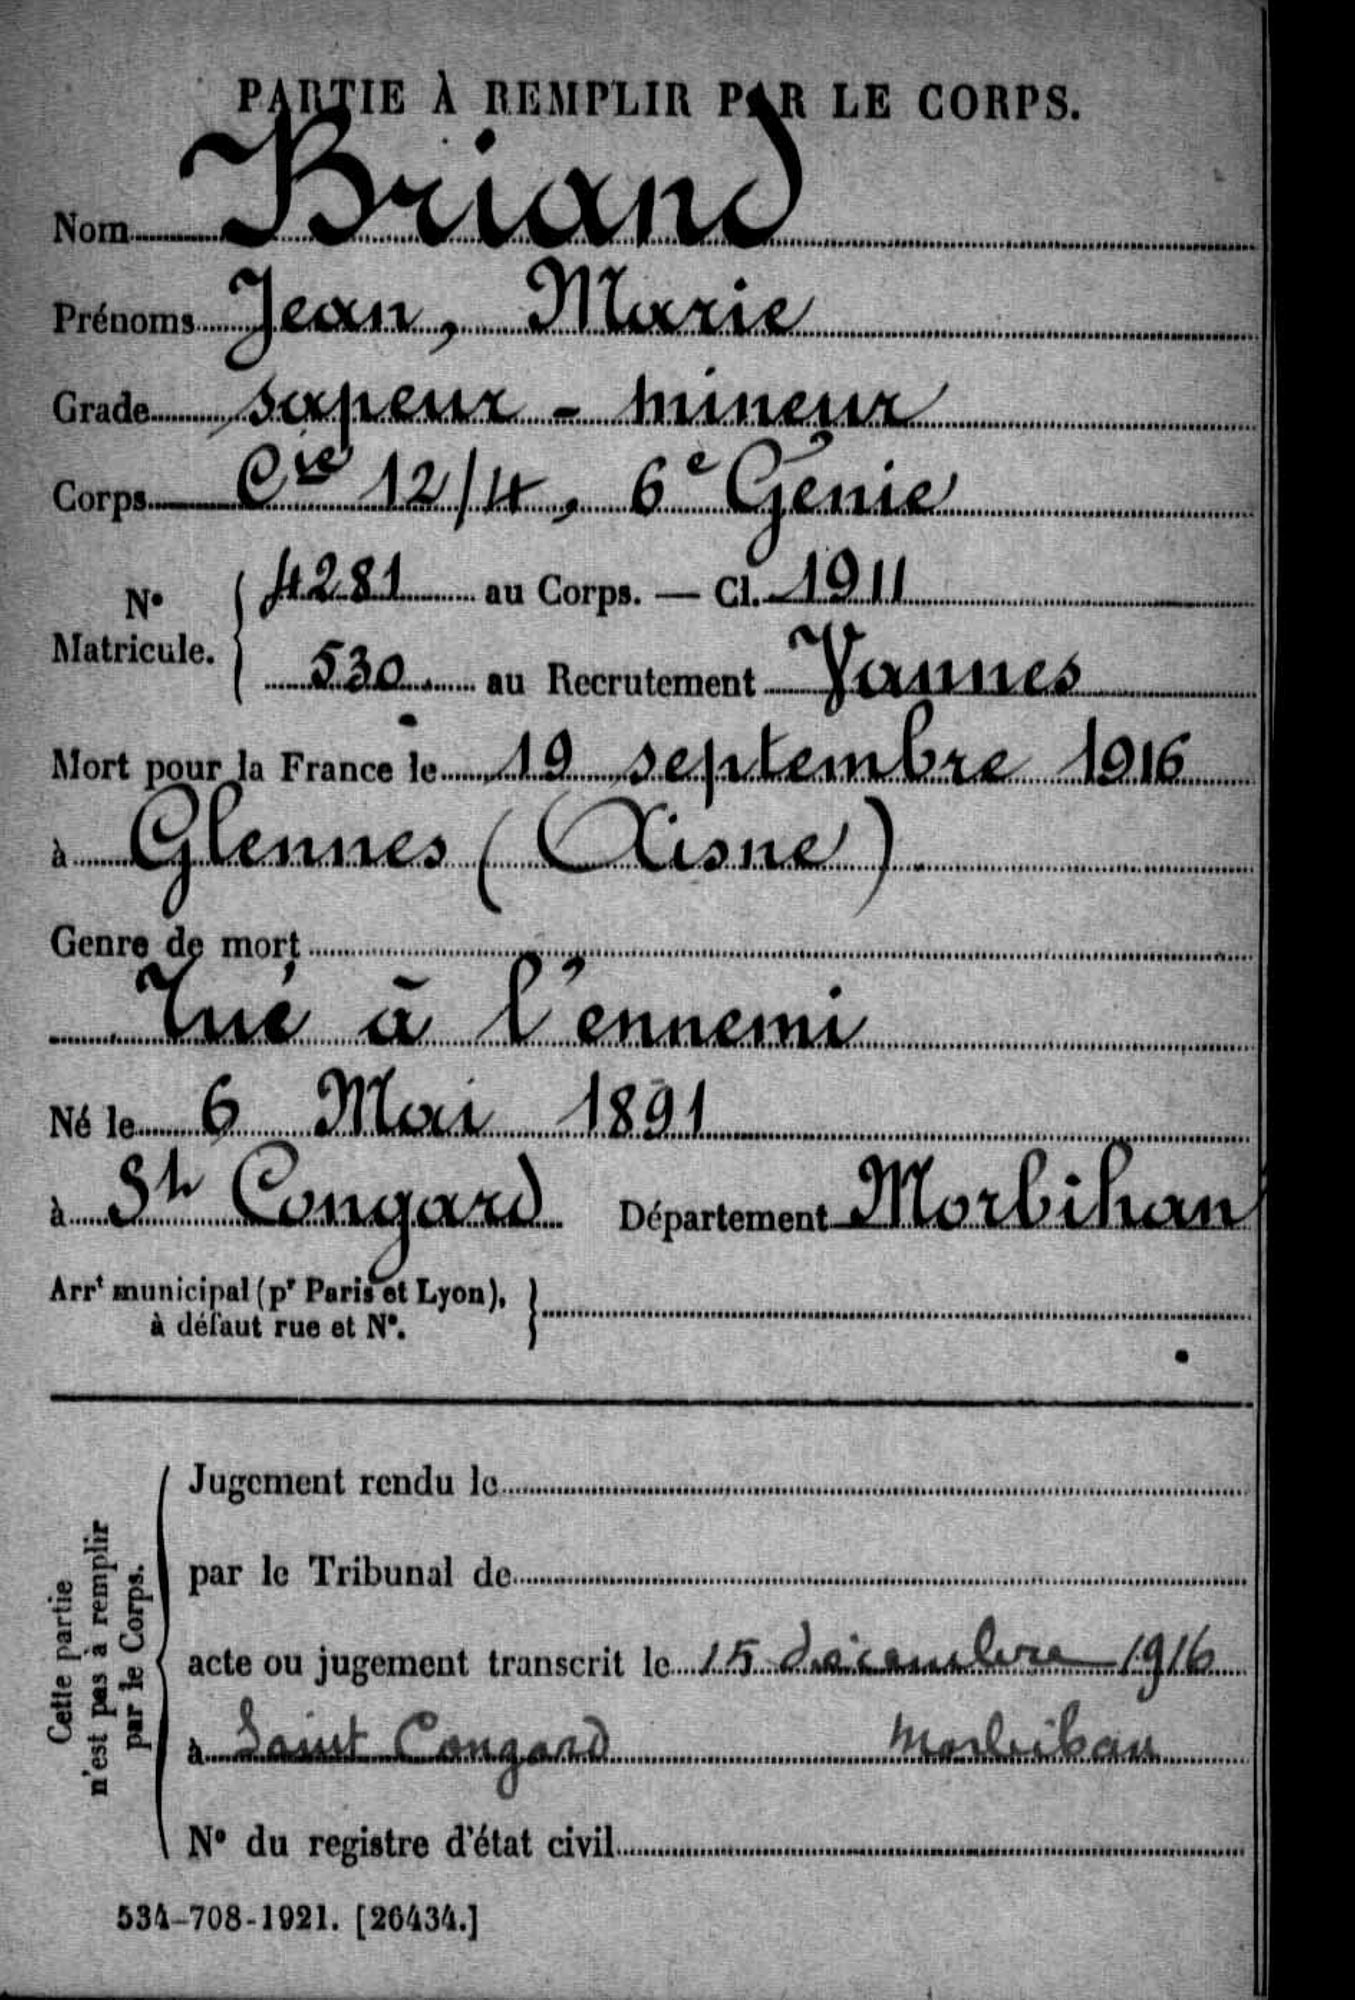 PARTIE À REMPLIR PAR LE CORPS.
Nom Briand
Prénoms Jean, Marie
Grade sapeur - mineur
Corps Cie 12/4, 6e Génie
No Matricule. { 4281 au Corps. — Cl. 1911
530 au Recrutement Vannes
Mort pour la France le 19 septembre 1916
à Glennes (Aisne)
Genre de mort
Tué à l'ennemi
Né le 6 Mai 1891
à St Congard Département Morbihan
Arrt municipal (pr Paris et Lyon), }
à défaut rue et No.
Cette partie
n'est pas à remplir
par le Corps.
Jugement rendu le
par le Tribunal de
acte ou jugement transcrit le 15 décembre 1916
à Saint Congard Morbihan
No du registre d'état civil
534-708-1921. [26434.]